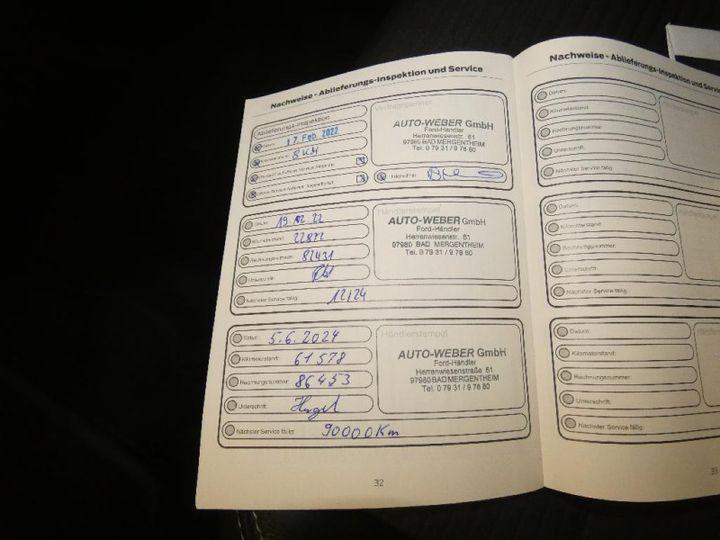 Nachweise - Ablieferungs-Inspektion und Service
Ablieferungs-Inspektion
Vertragspartner
Datum: 17. Feb. 2022
8 KM
AUTO-WEBER GmbH
Ford-Händler
Herrenwiesenstr. 61
97980 BAD MERGENTHEIM
Tel. 0 79 31 / 9 76 60
Unterschrift:
Datum: 19.12.22
Kilometerstand: 22872
Rechnungsnummer: 82431
Unterschrift:
Nächster Service fällig: 12/24
Händlerstempel
AUTO-WEBER GmbH
Ford-Händler
Herrenwiesenstr. 61
97980 BAD MERGENTHEIM
Tel. 0 79 31 / 9 76 60
Datum: 5.6.2024
Kilometerstand: 61578
Rechnungsnummer: 86453
Unterschrift:
Nächster Service fällig: 90000 Km
Händlerstempel
AUTO-WEBER GmbH
Ford-Händler
Herrenwiesenstraße 61
97980 BAD MERGENTHEIM
Tel. 0 79 31 / 9 76 60
32
Nachweise - Ablieferungs-Inspektion und Service
Datum:
Kilometerstand:
Rechnungsnummer:
Unterschrift:
Nächster Service fällig:
Datum:
Kilometerstand:
Rechnungsnummer:
Unterschrift:
Nächster Service fällig:
Datum:
Kilometerstand:
Rechnungsnummer:
Unterschrift:
Nächster Service fällig:
33